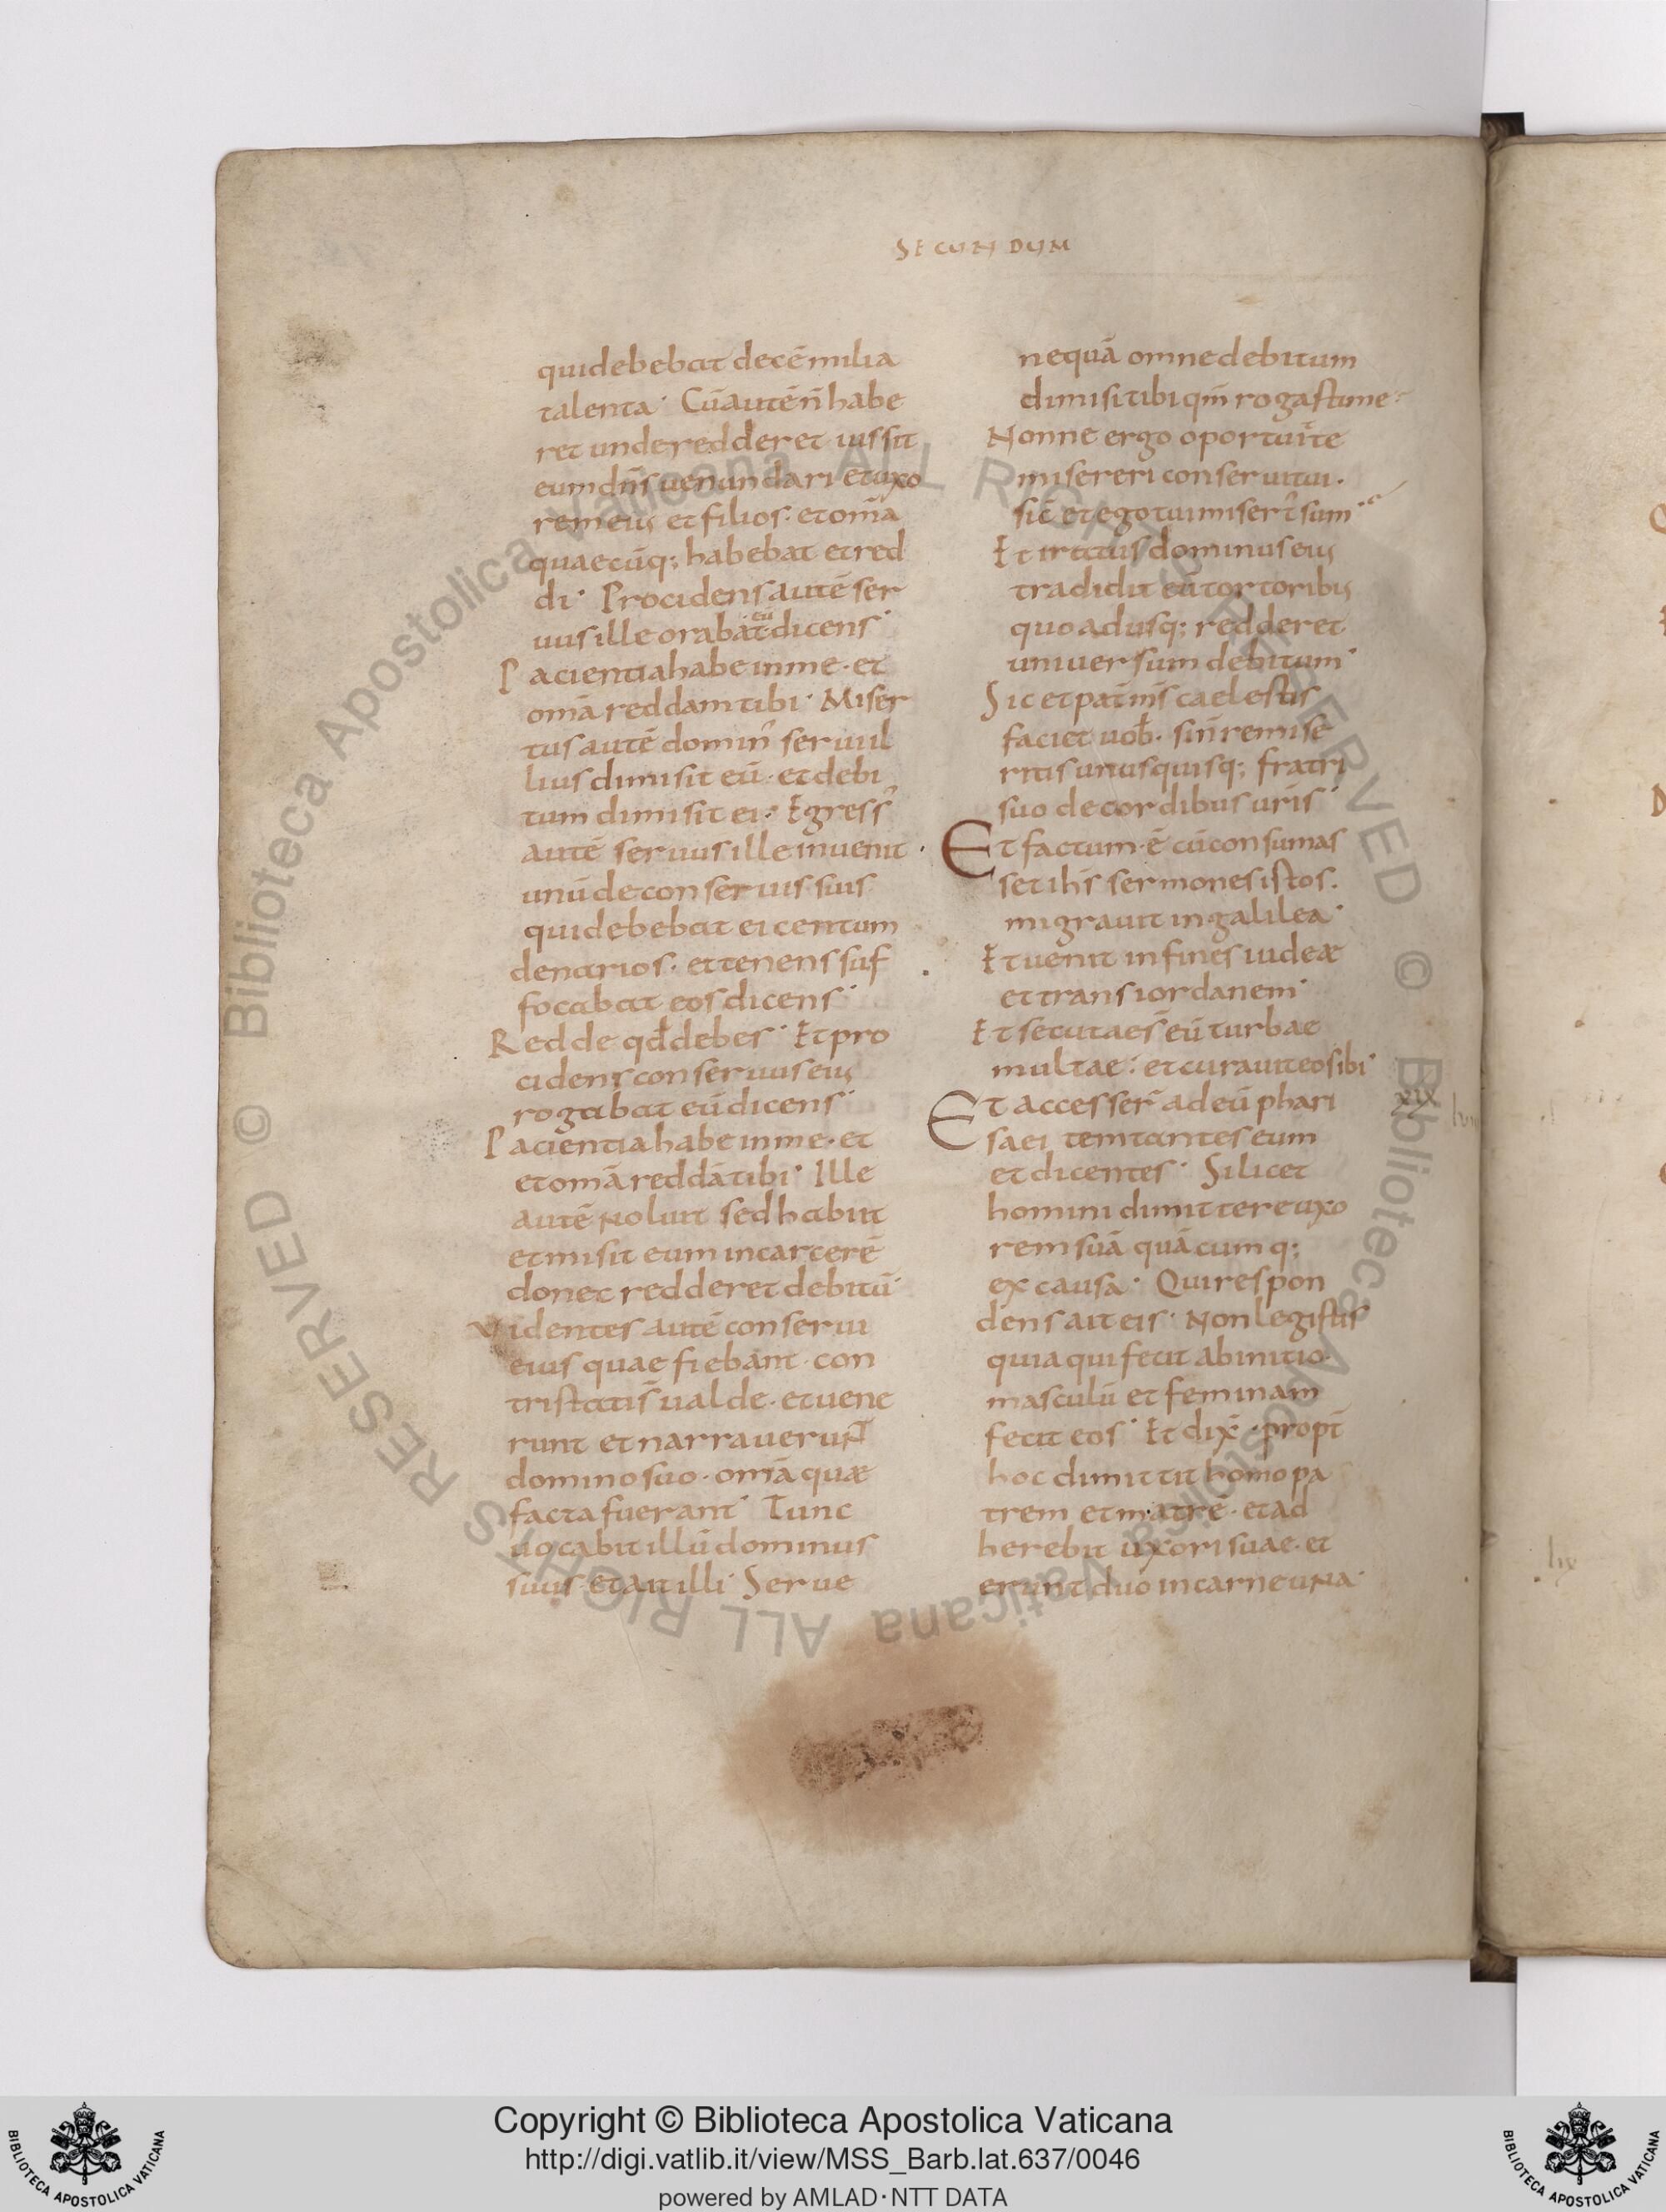 SECUNDUM
qui debebat decē milia
talenta· Cū autē n̄ habe
ret unde redderet iussit
eum dn̄s uenundari et uxo
rem eius et filios· et om̄a
quaecūq; habebat et red
di· Procidens autē ser
uus ille orabat eū dicens·
Pacientia habe in me· et
om̄a reddam tibi· Miser
tus autē domin' serui il
lius dimisit eū· et debi
tum dimisit ei· Egress'
autē seruus ille inuenit
unū de conseruis suis
qui debebat ei centum
denarios· et tenens suf
focabat eos dicens·
Redde qđ debes· Et pro
cidens conseruus eius
rogabat eū dicens·
Pacientia habe in me· et
et om̄a reddā tibi· Ille
autē noluit sed habiit
et misit eum in carcerē
donec redderet debitū·
Videntes autē conserui
eius quae fiebant· con
tristati s̄ ualde· et uene
runt et narrauerunt
domino suo· om̄a quæ
facta fuerant· Tunc
uocabit illū dominus
suus· et ait illi· Serue
nequā omne debitum
dimisi tibi qm̄ rogasti me·
Nonne ergo oportuit te
misereri conserui tui·
sic̄ et ego tui misert' sum·
Et iratus dominus eius
tradidit eū tortoribus
quoadusq; redderet
uniuersum debitum·
Sic et pat̄ m̄s caelestis
faciet uob̄· si n̄ remise
ritis unusquisq; fratri
suo de cordibus uris·
Et factum· ē cū consumas
set ih̄s sermones istos·
migrauit in galilea·
Et uenit in fines iudeæ
et trans iordanem·
Et secutae s̄ eū turbae
multae· et curauit eos ibi·
Et accesser̄ ad eū phari
saei temtantes eum
et dicentes· Si licet
homini dimittere uxo
rem suā quācumq;
ex causa· Qui respon
dens ait eis· Non legistis
quia qui fecit ab initio·
masculū et feminam
fecit eos· Et dix̄· propt̄
hoc dimittit homo pa
trem et matrē· et ad
herebit uxori suae· et
erunt duo in carne una·
xix
Copyright © Biblioteca Apostolica Vaticana
http://digi.vatlib.it/view/MSS_Barb.lat.637/0046
powered by AMLAD·NTT DATA
BIBLIOTECA APOSTOLICA VATICANA
BIBLIOTECA APOSTOLICA VATICANA
© Biblioteca Apostolica Vaticana ALL RIGHTS RESERVED © Biblioteca Apostolica Vaticana ALL RIGHTS RESERVED